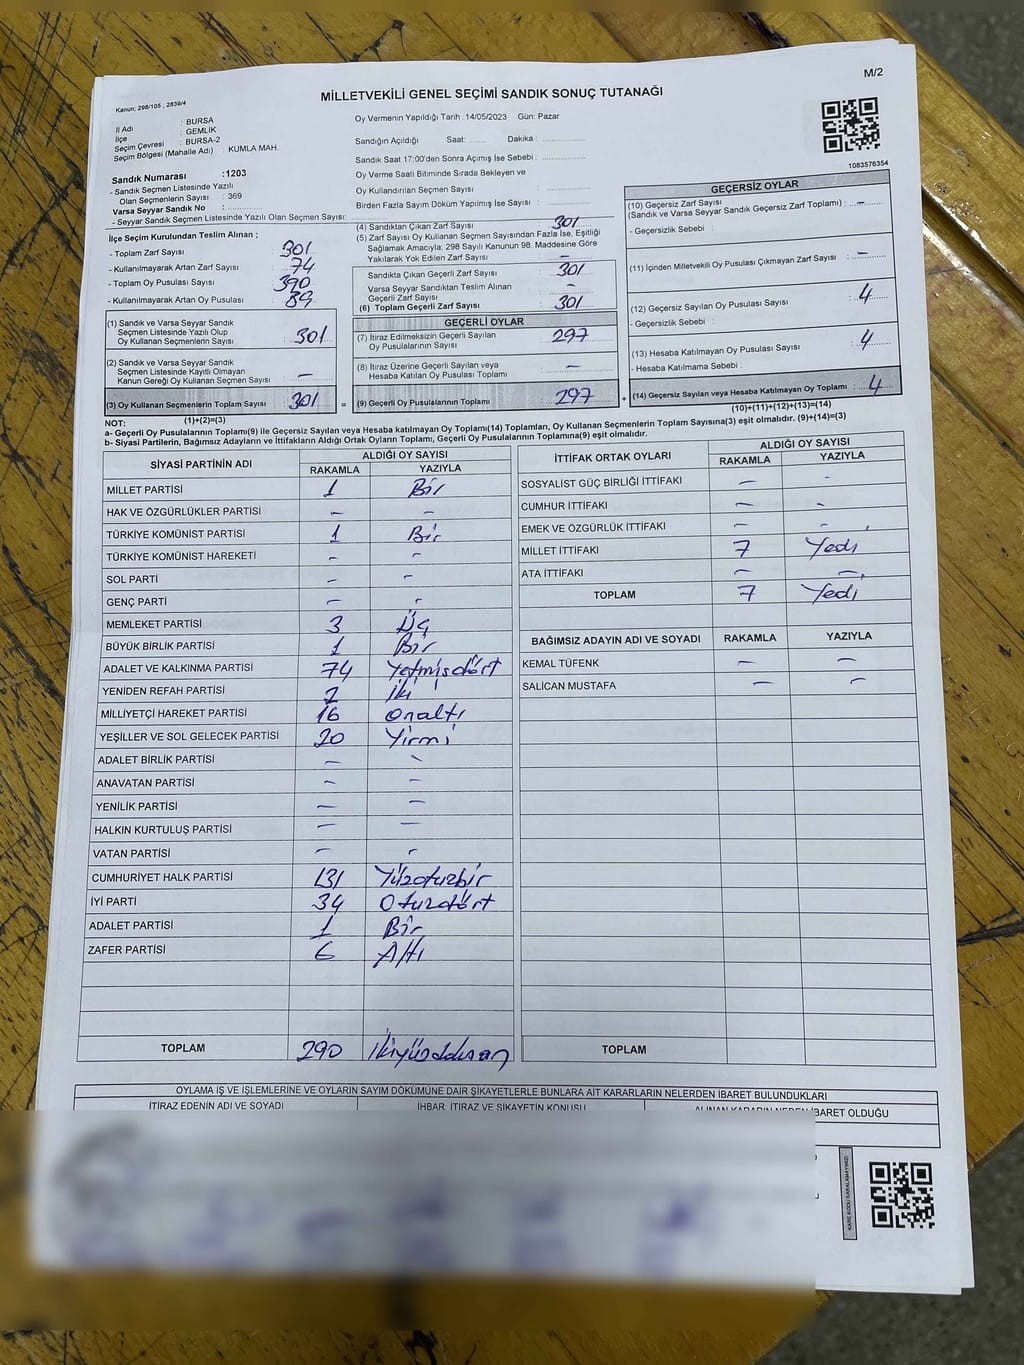 M/2
Kanun; 298/105 , 2839/4
MİLLETVEKİLİ GENEL SEÇİMİ SANDIK SONUÇ TUTANAĞI
İl Adı : BURSA
İlçe : GEMLİK
Seçim Çevresi : BURSA-2
Seçim Bölgesi (Mahalle Adı) : KUMLA MAH.
Sandık Numarası :1203
- Sandık Seçmen Listesinde Yazılı
Olan Seçmenlerin Sayısı : 369
Varsa Seyyar Sandık No :
- Seyyar Sandık Seçmen Listesinde Yazılı Olan Seçmen Sayısı:
Oy Vermenin Yapıldığı Tarih :14/05/2023 Gün: Pazar
Sandığın Açıldığı Saat: Dakika :
Sandık Saat 17:00'den Sonra Açımış İse Sebebi :
Oy Verme Saati Bitiminde Sırada Bekleyen ve
Oy Kullandırılan Seçmen Sayısı :
Birden Fazla Sayım Döküm Yapılmış İse Sayısı :
1083576354
İlçe Seçim Kurulundan Teslim Alınan ;
- Toplam Zarf Sayısı : 301
- Kullanılmayarak Artan Zarf Sayısı : 74
- Toplam Oy Pusulası Sayısı : 390
- Kullanılmayarak Artan Oy Pusulası : 89
(1) Sandık ve Varsa Seyyar Sandık
Seçmen Listesinde Yazılı Olup
Oy Kullanan Seçmenlerin Sayısı : 301
(2) Sandık ve Varsa Seyyar Sandık
Seçmen Listesinde Kayıtlı Olmayan
Kanun Gereği Oy Kullanan Seçmen Sayısı : –
(3) Oy Kullanan Seçmenlerin Toplam Sayısı : 301 =
(1)+(2)=(3)
(4) Sandıktan Çıkan Zarf Sayısı : 301
(5) Zarf Sayısı Oy Kullanan Seçmen Sayısından Fazla İse, Eşitliği
Sağlamak Amacıyla; 298 Sayılı Kanunun 98. Maddesine Göre
Yakılarak Yok Edilen Zarf Sayısı : –
Sandıkta Çıkan Geçerli Zarf Sayısı : 301
Varsa Seyyar Sandıktan Teslim Alınan
Geçerli Zarf Sayısı : –
(6) Toplam Geçerli Zarf Sayısı : 301
GEÇERLİ OYLAR
(7) İtiraz Edilmeksizin Geçerli Sayılan
Oy Pusulalarının Sayısı : 297
(8) İtiraz Üzerine Geçerli Sayılan veya
Hesaba Katılan Oy Pusulası Toplamı : –
(9) Geçerli Oy Pusulalarının Toplamı : 297 +
GEÇERSİZ OYLAR
(10) Geçersiz Zarf Sayısı
(Sandık ve Varsa Seyyar Sandık Geçersiz Zarf Toplamı) : –
- Geçersizlik Sebebi :
(11) İçinden Milletvekili Oy Pusulası Çıkmayan Zarf Sayısı : –
(12) Geçersiz Sayılan Oy Pusulası Sayısı : 4
- Geçersizlik Sebebi :
(13) Hesaba Katılmayan Oy Pusulası Sayısı : 4
- Hesaba Katılmama Sebebi :
(14) Geçersiz Sayılan veya Hesaba Katılmayan Oy Toplamı : 4
(10)+(11)+(12)+(13)=(14)
NOT:
a- Geçerli Oy Pusulalarının Toplamı(9) ile Geçersiz Sayılan veya Hesaba katılmayan Oy Toplamı(14) Toplamları, Oy Kullanan Seçmenlerin Toplam Sayısına(3) eşit olmalıdır. (9)+(14)=(3)
b- Siyasi Partilerin, Bağımsız Adayların ve İttifakların Aldığı Ortak Oyların Toplamı, Geçerli Oy Pusulalarının Toplamına(9) eşit olmalıdır.
SİYASİ PARTİNİN ADI ALDIĞI OY SAYISI
RAKAMLA YAZIYLA
MİLLET PARTİSİ 1 Bir
HAK VE ÖZGÜRLÜKLER PARTİSİ – –
TÜRKİYE KOMÜNİST PARTİSİ 1 Bir
TÜRKİYE KOMÜNİST HAREKETİ – –
SOL PARTİ – –
GENÇ PARTİ – –
MEMLEKET PARTİSİ 3 Üç
BÜYÜK BİRLİK PARTİSİ 1 Bir
ADALET VE KALKINMA PARTİSİ 74 Yetmişdört
YENİDEN REFAH PARTİSİ 2 İki
MİLLİYETÇİ HAREKET PARTİSİ 16 Onaltı
YEŞİLLER VE SOL GELECEK PARTİSİ 20 Yirmi
ADALET BİRLİK PARTİSİ – –
ANAVATAN PARTİSİ – –
YENİLİK PARTİSİ – –
HALKIN KURTULUŞ PARTİSİ – –
VATAN PARTİSİ – –
CUMHURİYET HALK PARTİSİ 131 Yüzotuzbir
İYİ PARTİ 34 Otuzdört
ADALET PARTİSİ 1 Bir
ZAFER PARTİSİ 6 Altı
TOPLAM 290 İkiyüzdoksan
İTTİFAK ORTAK OYLARI ALDIĞI OY SAYISI
RAKAMLA YAZIYLA
SOSYALİST GÜÇ BİRLİĞİ İTTİFAKI – –
CUMHUR İTTİFAKI – –
EMEK VE ÖZGÜRLÜK İTTİFAKI – –
MİLLET İTTİFAKI 7 Yedi
ATA İTTİFAKI – –
TOPLAM 7 Yedi
BAĞIMSIZ ADAYIN ADI VE SOYADI RAKAMLA YAZIYLA
KEMAL TÜFENK – –
SALİCAN MUSTAFA – –
TOPLAM
OYLAMA İŞ VE İŞLEMLERİNE VE OYLARIN SAYIM DÖKÜMÜNE DAİR ŞİKAYETLERLE BUNLARA AİT KARARLARIN NELERDEN İBARET BULUNDUKLARI
İTİRAZ EDENİN ADI VE SOYADI İHBAR, İTİRAZ VE ŞİKAYETİN KONUSU ALINAN KARARIN NEDEN İBARET OLDUĞU
KARE KODU KARALAMAYINIZ!